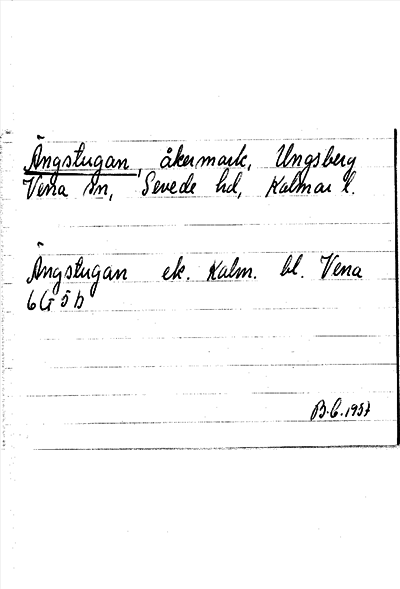 Ängstugan, åkermark, Ungsberg
Vena sn, Sevede hd, Kalmar l.
Ängstugan ek. Kalm. bl. Vena
6G 5b
B.C. 1957